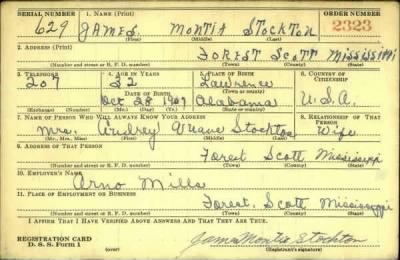 SERIAL NUMBER 1. NAME (Print) ORDER NUMBER
629 JAMES MONTIE STOCKTON 2323
(First) (Middle) (Last)
2. ADDRESS (Print)
FOREST SCOTT MISSISSIPPI
(Number and street or R. F. D. number) (Town) (County) (State)
3. TELEPHONE 4. AGE IN YEARS 5. PLACE OF BIRTH 6. COUNTRY OF CITIZENSHIP
207 32 Lawrence
DATE OF BIRTH (Town or county)
Oct 28 1907 Alabama U.S.A.
(Exchange) (Number) (Mo.) (Day) (Yr.) (State or country)
7. NAME OF PERSON WHO WILL ALWAYS KNOW YOUR ADDRESS 8. RELATIONSHIP OF THAT PERSON
Mrs. Audrey Stockton Wife
(Mr., Mrs., Miss) (First) (Middle) (Last)
9. ADDRESS OF THAT PERSON
Forest Scott Mississippi
(Number and street or R. F. D. number) (Town) (County) (State)
10. EMPLOYER'S NAME
Arno Mills
11. PLACE OF EMPLOYMENT OR BUSINESS
Forest, Scott Mississippi
(Number and street or R. F. D. number) (Town) (County) (State)
I AFFIRM THAT I HAVE VERIFIED ABOVE ANSWERS AND THAT THEY ARE TRUE.
REGISTRATION CARD
D. S. S. Form 1 (over) James Montie Stockton
(Registrant's signature)